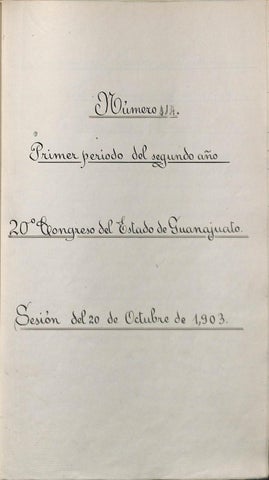 Número 114.
Primer periodo del segundo año
20º Congreso del Estado de Guanajuato.
Sesión del 20 de Octubre de 1,903.